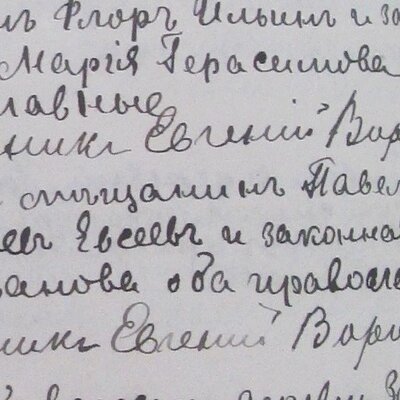 Флоръ Ильинъ и за
Марія Герасимова
лавные
Евгеній Вор
мѣщанинъ Павел
Евсеевъ и законна
ванова оба правосла
Евгеній Вор